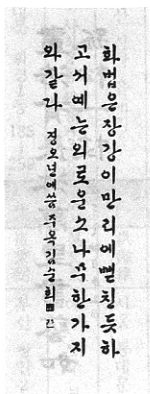 화법은장강이만리에뻗친듯하
고서예는외로운소나무한가지
와같다 경오년에씀 주옥김순희